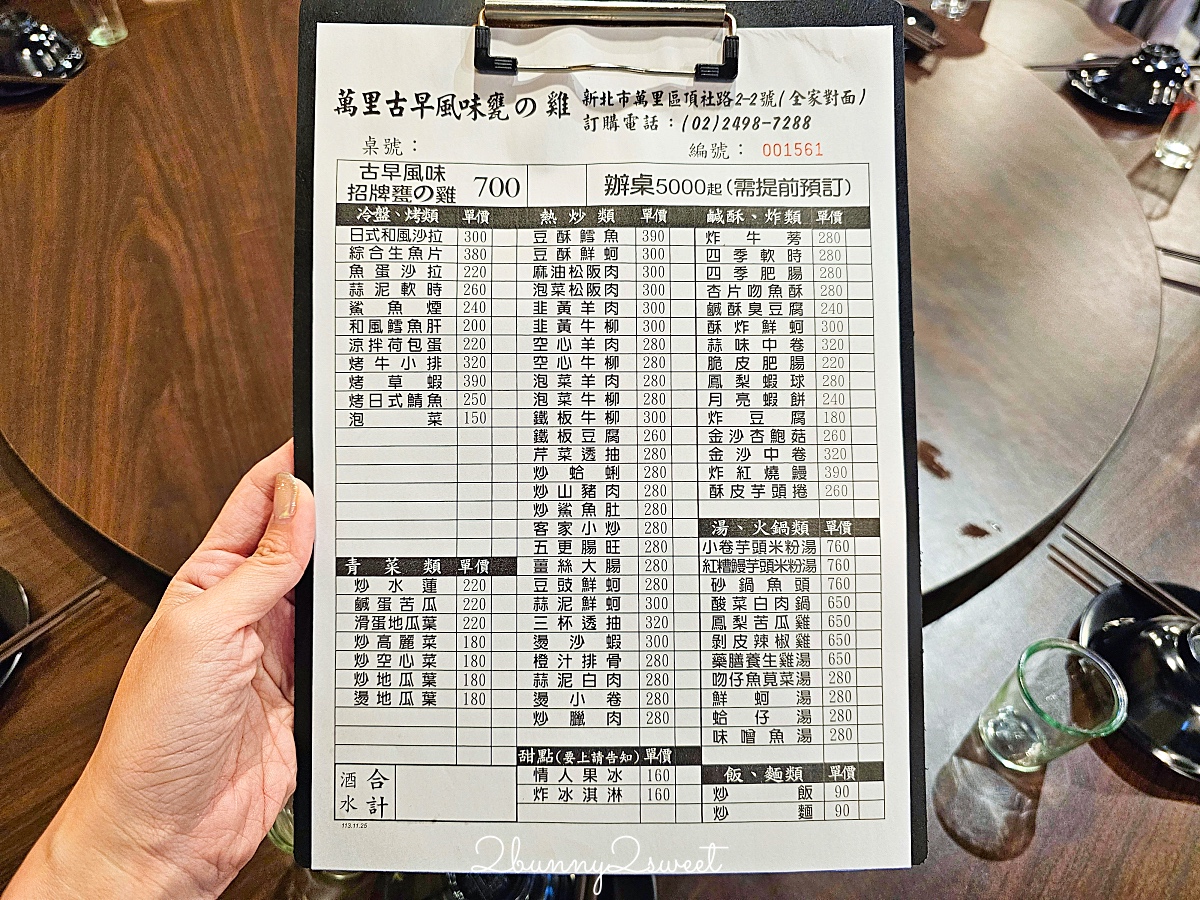 萬里古早風味甕の雞 新北市萬里區頂社路2-2號(全家對面)
訂購電話：(02)2498-7288
桌號： 編號： 001561
古早風味
招牌甕の雞 700 辦桌5000起(需提前預訂)
冷盤、烤類 單價
日式和風沙拉 300
綜合生魚片 380
魚蛋沙拉 220
蒜泥軟時 260
鯊魚煙 240
和風鱈魚肝 200
涼拌荷包蛋 220
烤牛小排 320
烤草蝦 390
烤日式鯖魚 250
泡菜 150
青菜類 單價
炒水蓮 220
鹹蛋苦瓜 220
滑蛋地瓜葉 220
炒高麗菜 180
炒空心菜 180
炒地瓜葉 180
燙地瓜葉 180
酒水 合計
113.11.25
熱炒類 單價
豆酥鱈魚 390
豆酥鮮蚵 300
麻油松阪肉 300
泡菜松阪肉 300
韭黃羊肉 300
韭黃牛柳 300
空心羊肉 280
空心牛柳 280
泡菜羊肉 280
泡菜牛柳 280
鐵板牛柳 300
鐵板豆腐 260
芹菜透抽 280
炒蛤蜊 280
炒山豬肉 280
炒鯊魚肚 280
客家小炒 280
五更腸旺 280
薑絲大腸 280
豆豉鮮蚵 280
蒜泥鮮蚵 300
三杯透抽 320
燙沙蝦 300
橙汁排骨 280
蒜泥白肉 280
燙小卷 280
炒臘肉 280
甜點(要上請告知) 單價
情人果冰 160
炸冰淇淋 160
鹹酥、炸類 單價
炸牛蒡 280
四季軟時 280
四季肥腸 280
杏片吻魚酥 280
鹹酥臭豆腐 240
酥炸鮮蚵 300
蒜味中卷 320
脆皮肥腸 220
鳳梨蝦球 280
月亮蝦餅 240
炸豆腐 180
金沙杏鮑菇 260
金沙中卷 320
炸紅燒鰻 390
酥皮芋頭捲 260
湯、火鍋類 單價
小卷芋頭米粉湯 760
紅糟鰻芋頭米粉湯 760
砂鍋魚頭 760
酸菜白肉鍋 650
鳳梨苦瓜雞 650
剝皮辣椒雞 650
藥膳養生雞湯 650
吻仔魚莧菜湯 280
鮮蚵湯 280
蛤仔湯 280
味噌魚湯 280
飯、麵類 單價
炒飯 90
炒麵 90
2bunny2sweet